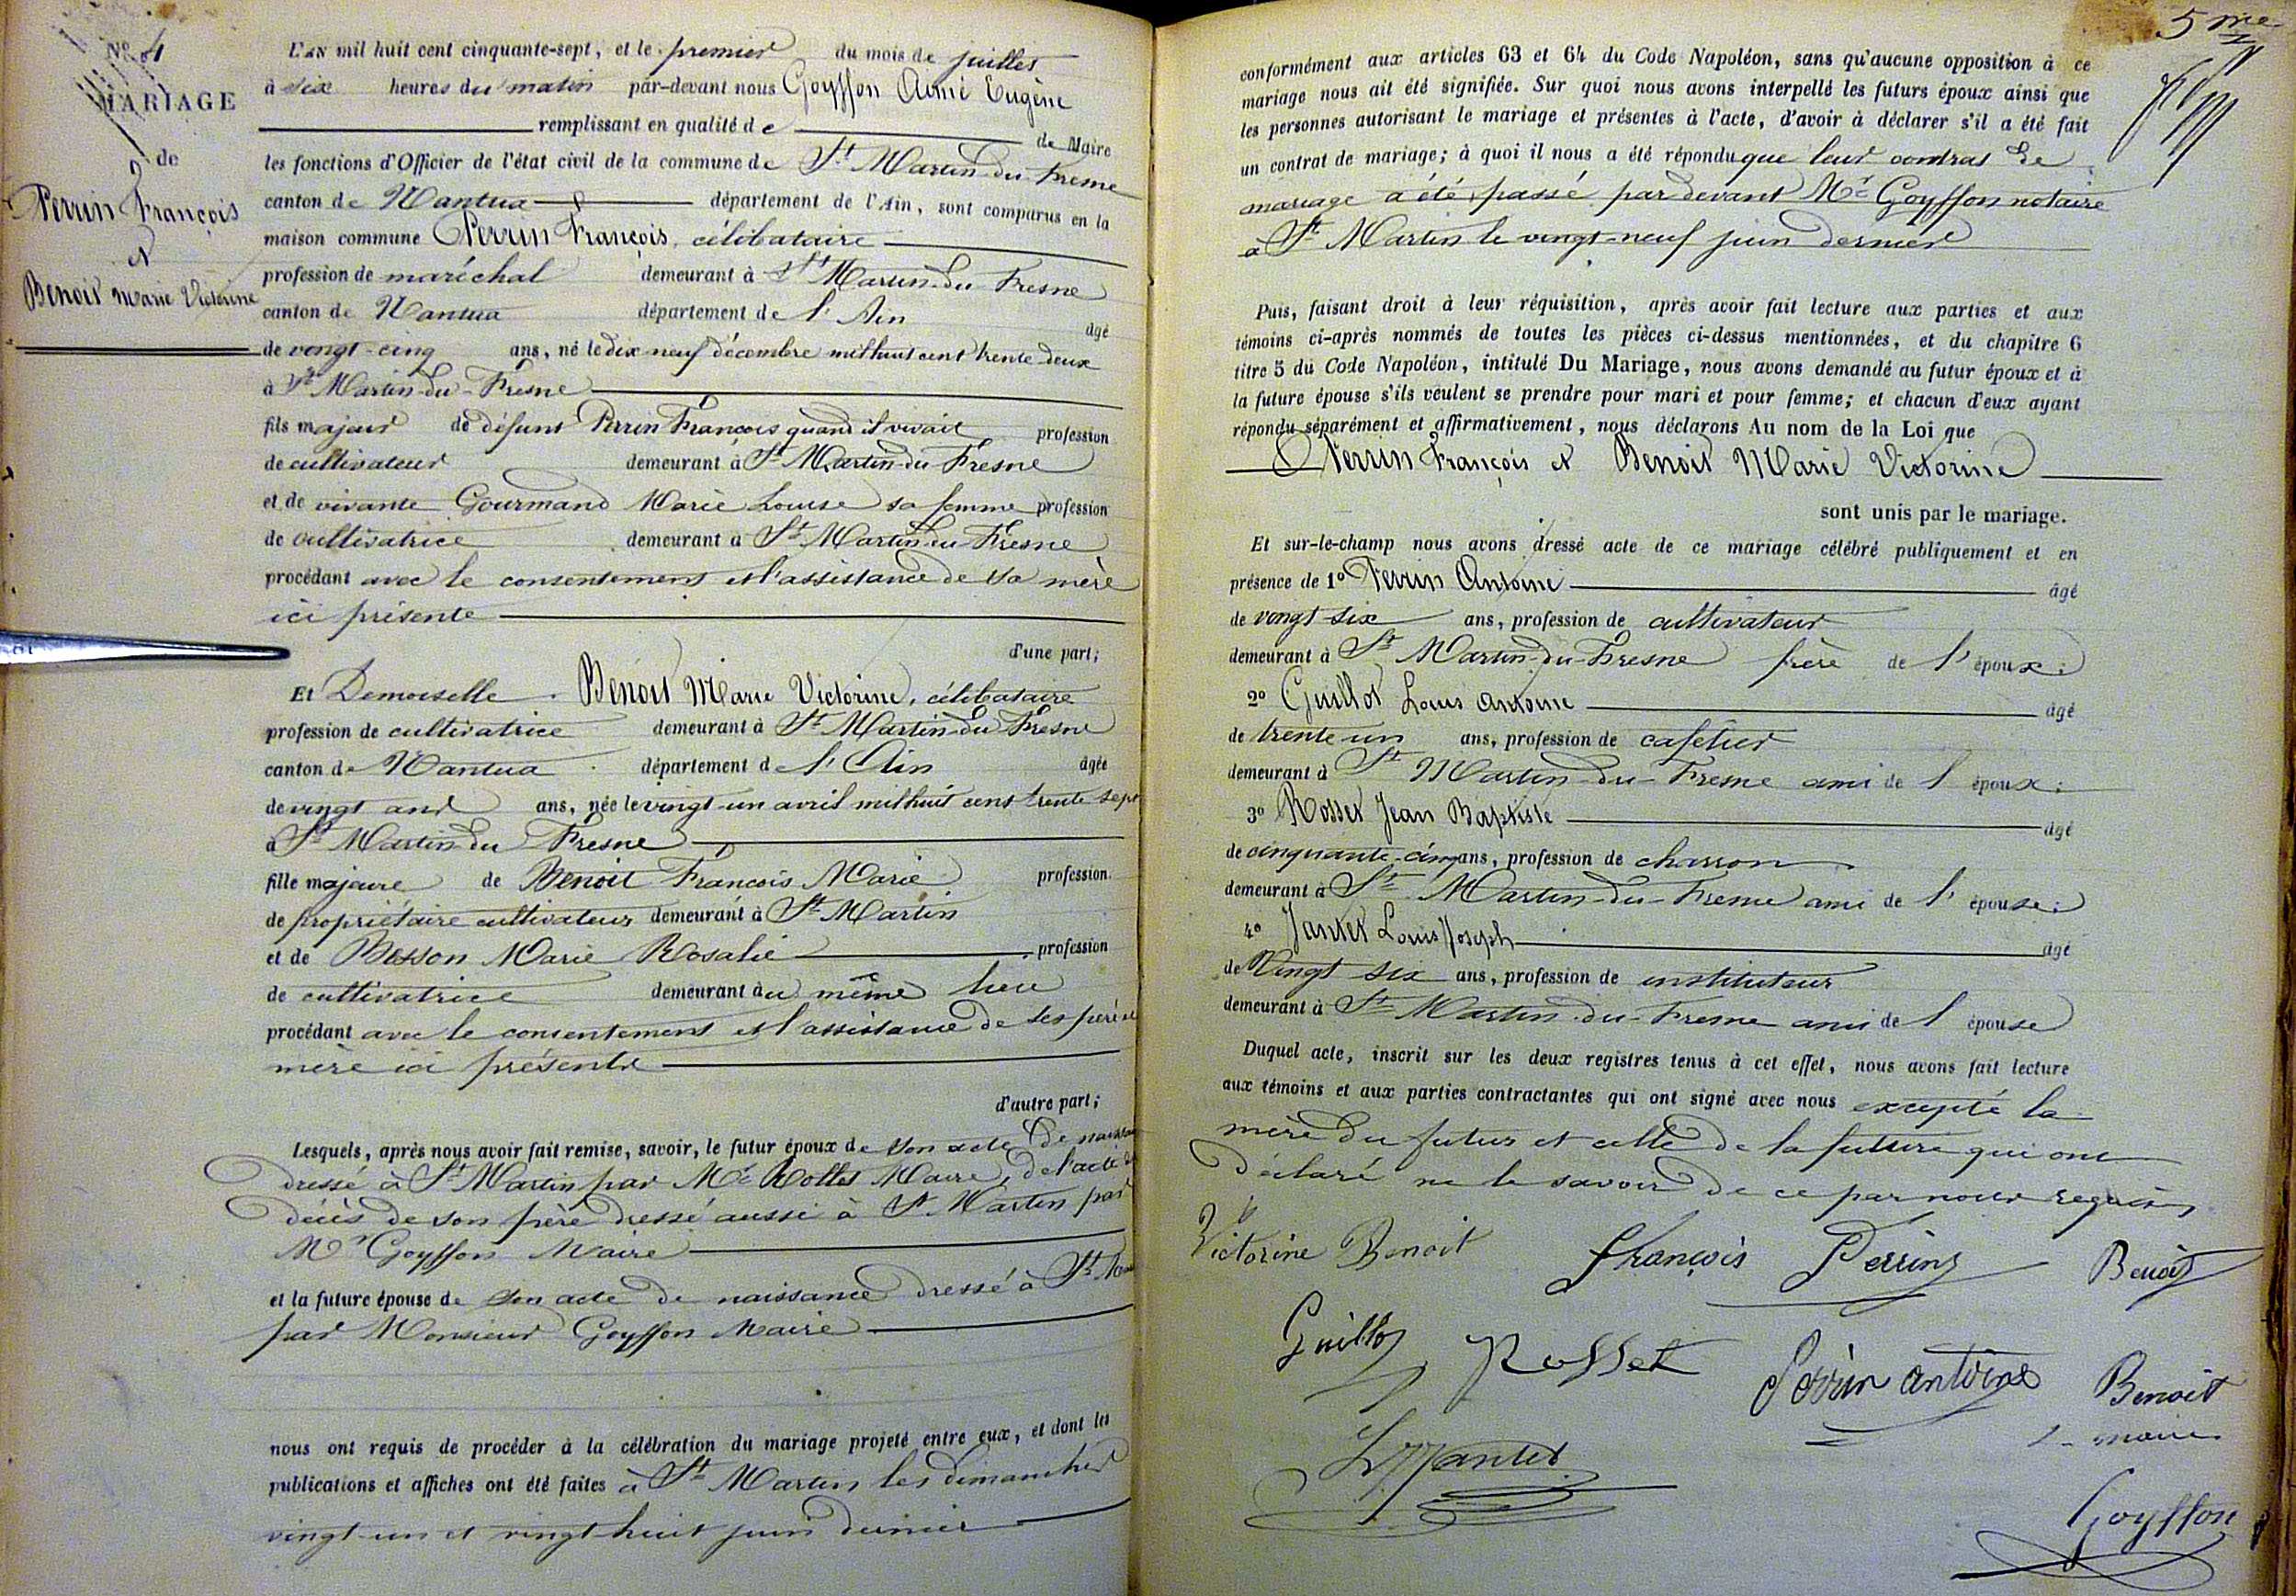 N° 4
MARIAGE
de
Perrin François
et
Benoit Marie Victorine
L'AN mil huit cent cinquante-sept, et le premier du mois de juillet
à six heures du matin par-devant nous Goyffon Aimé Eugène
remplissant en qualité de
de Maire
les fonctions d'Officier de l'état civil de la commune de St Martin-du-Fresne
canton de Nantua département de l'Ain, sont comparus en la
maison commune Perrin François, célibataire
profession de maréchal demeurant à St Martin-du-Fresne
canton de Nantua département de l'Ain
âgé
de vingt-cinq ans, né le dix neuf décembre mil huit cent trente deux
à St Martin-du-Fresne
fils majeur de défunt Perrin François quand il vivait profession
de cultivateur demeurant à St Martin-du-Fresne
et de vivante Gourmand Marie Louise sa femme profession
de cultivatrice demeurant à St Martin-du-Fresne
procédant avec le consentement et l'assistance de sa mère
ici présente
d'une part;
Et Demoiselle Benoit Marie Victorine, célibataire
profession de cultivatrice demeurant à St Martin-du-Fresne
canton de Nantua département de l'Ain âgée
de vingt ans ans, née le vingt-un avril mil huit cent trente sept
à St Martin-du Fresne
fille majeure de Benoit François Marie profession
de propriétaire cultivateur demeurant à St Martin
et de Besson Marie Rosalie profession
de cultivatrice demeurant àu même lieu
procédant avec le consentement et l'assistance de ses père et
mère ici présents
d'autre part;
Lesquels, après nous avoir fait remise, savoir, le futur époux de son acte de naissance
dressé à St Martin par Mr Rollet Maire, de l'acte de
décès de son père dressé aussi à St Martin par
Mr Goyffon Maire
et la future épouse de son acte de naissance dressé à St
par Monsieur Goyffon Maire
nous ont requis de procéder à la célébration du mariage projeté entre eux, et dont les
publications et affiches ont été faites à St Martin les dimanches
vingt-un et vingt-huit juin dernier
5me
conformément aux articles 63 et 64 du Code Napoléon, sans qu'aucune opposition à ce
mariage nous ait été signifiée. Sur quoi nous avons interpellé les futurs époux ainsi que
les personnes autorisant le mariage et présentes à l'acte, d'avoir à déclarer s'il a été fait
un contrat de mariage; à quoi il nous a été répondu que leur contrat de
mariage a été passé par devant Me Goyffon notaire
à St Martin le vingt-neuf juin dernier
Puis, faisant droit à leur réquisition, après avoir fait lecture aux parties et aux
témoins ci-après nommés de toutes les pièces ci-dessus mentionnées, et du chapitre 6
titre 5 du Code Napoléon, intitulé Du Mariage, nous avons demandé au futur époux et à
la future épouse s'ils veulent se prendre pour mari et pour femme; et chacun d'eux ayant
répondu séparément et affirmativement, nous déclarons Au nom de la Loi que
Perrin François et Benoit Marie Victorine
sont unis par le mariage.
Et sur-le-champ nous avons dressé acte de ce mariage célébré publiquement et en
présence de 1° Perrin Antoine âgé
de vingt six ans, profession de cultivateur
demeurant à St Martin-du-Fresne frère de l'époux;
2° Guillot Louis Antoine âgé
de trente un ans, profession de cafetier
demeurant à St Martin-du-Fresne ami de l'époux;
3° Rosset Jean Baptiste âgé
de cinquante-cinq ans, profession de charron
demeurant à St Martin-du-Fresne ami de l'épouse;
4° Jantet Louis Joseph âgé
de Vingt six ans, profession de instituteur
demeurant à St Martin-du-Fresne ami de l'épouse
Duquel acte, inscrit sur les deux registres tenus à cet effet, nous avons fait lecture
aux témoins et aux parties contractantes qui ont signé avec nous excepté la
mère du futur et celle de la future qui ont
déclaré ne le savoir de ce par nous requis
Victorine Benoit François Perrin Benoit
Guillot Rosset Perrin antoine Benoit
maire
L J Jantet
Goyffon